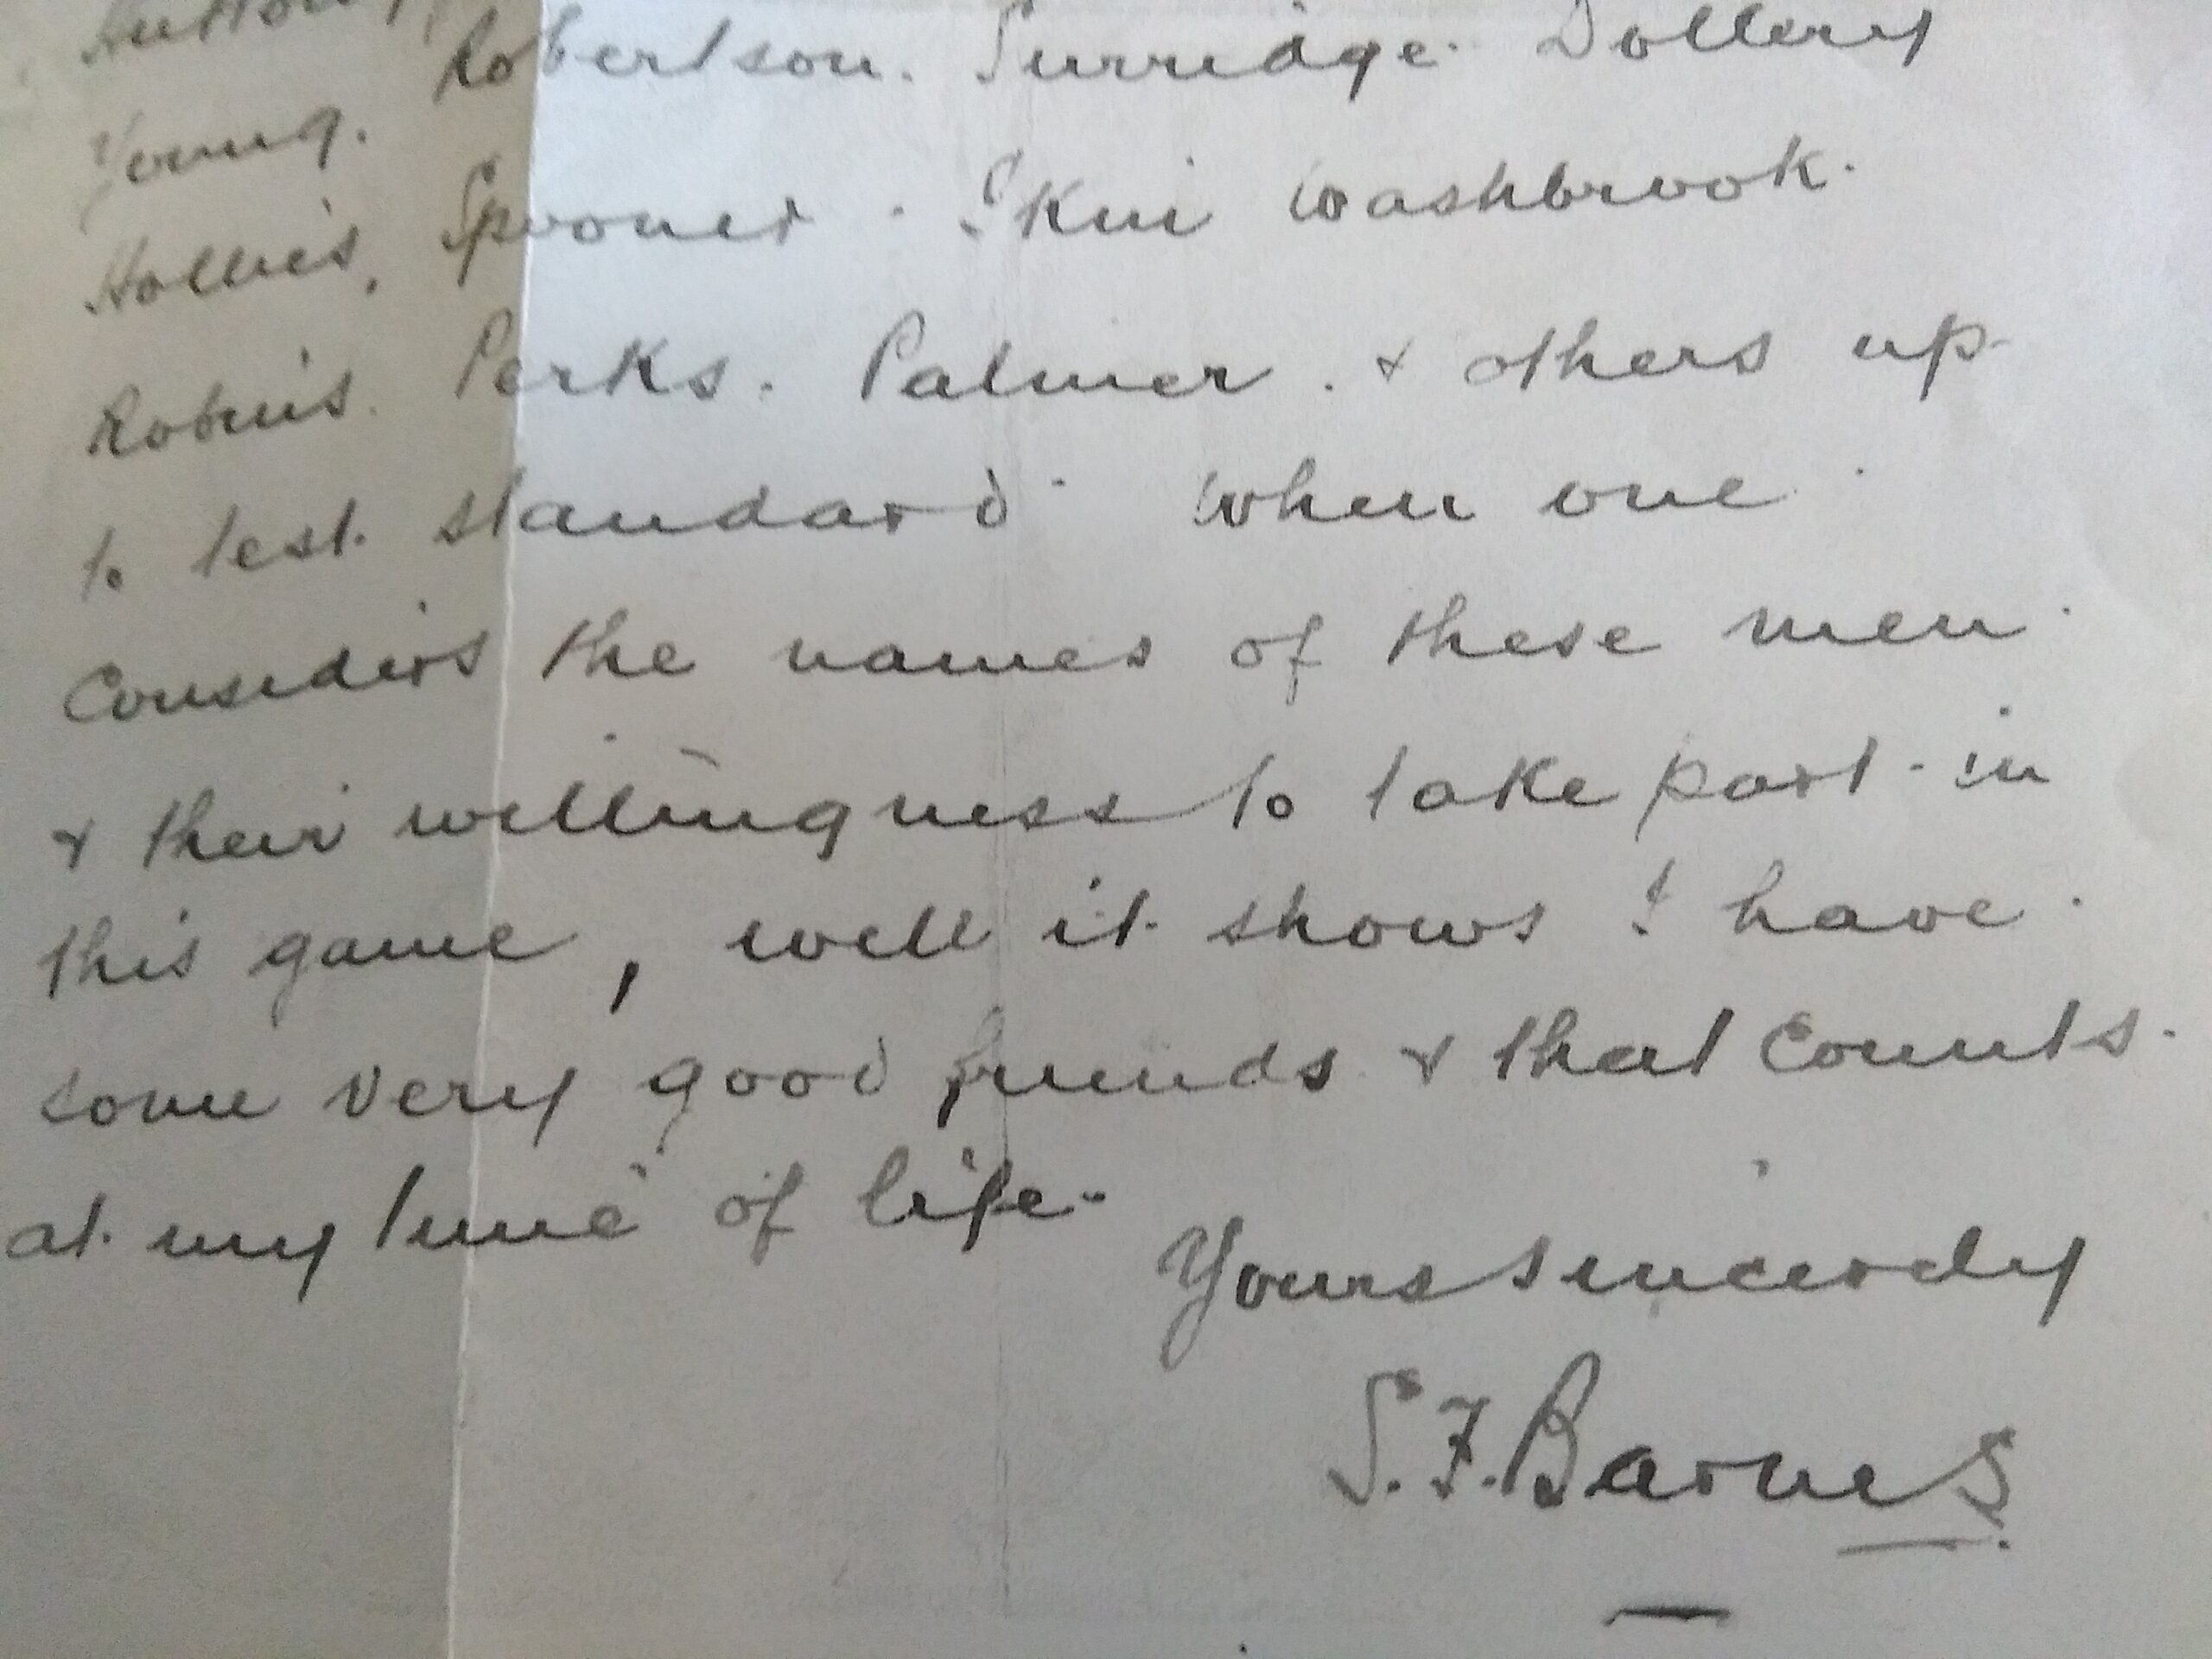 Hutton,
Young. Robertson. Surridge. Dollery
Hollies, Spooner. Ikin Washbrook.
Robins. Perks. Palmer. & others up
to test standard. When one
Considers the names of these men.
& their willingness to take part in
this game, well it shows I have.
some very good friends & that Counts.
at my time of life.
Yours sincerely
S. F. Barnes